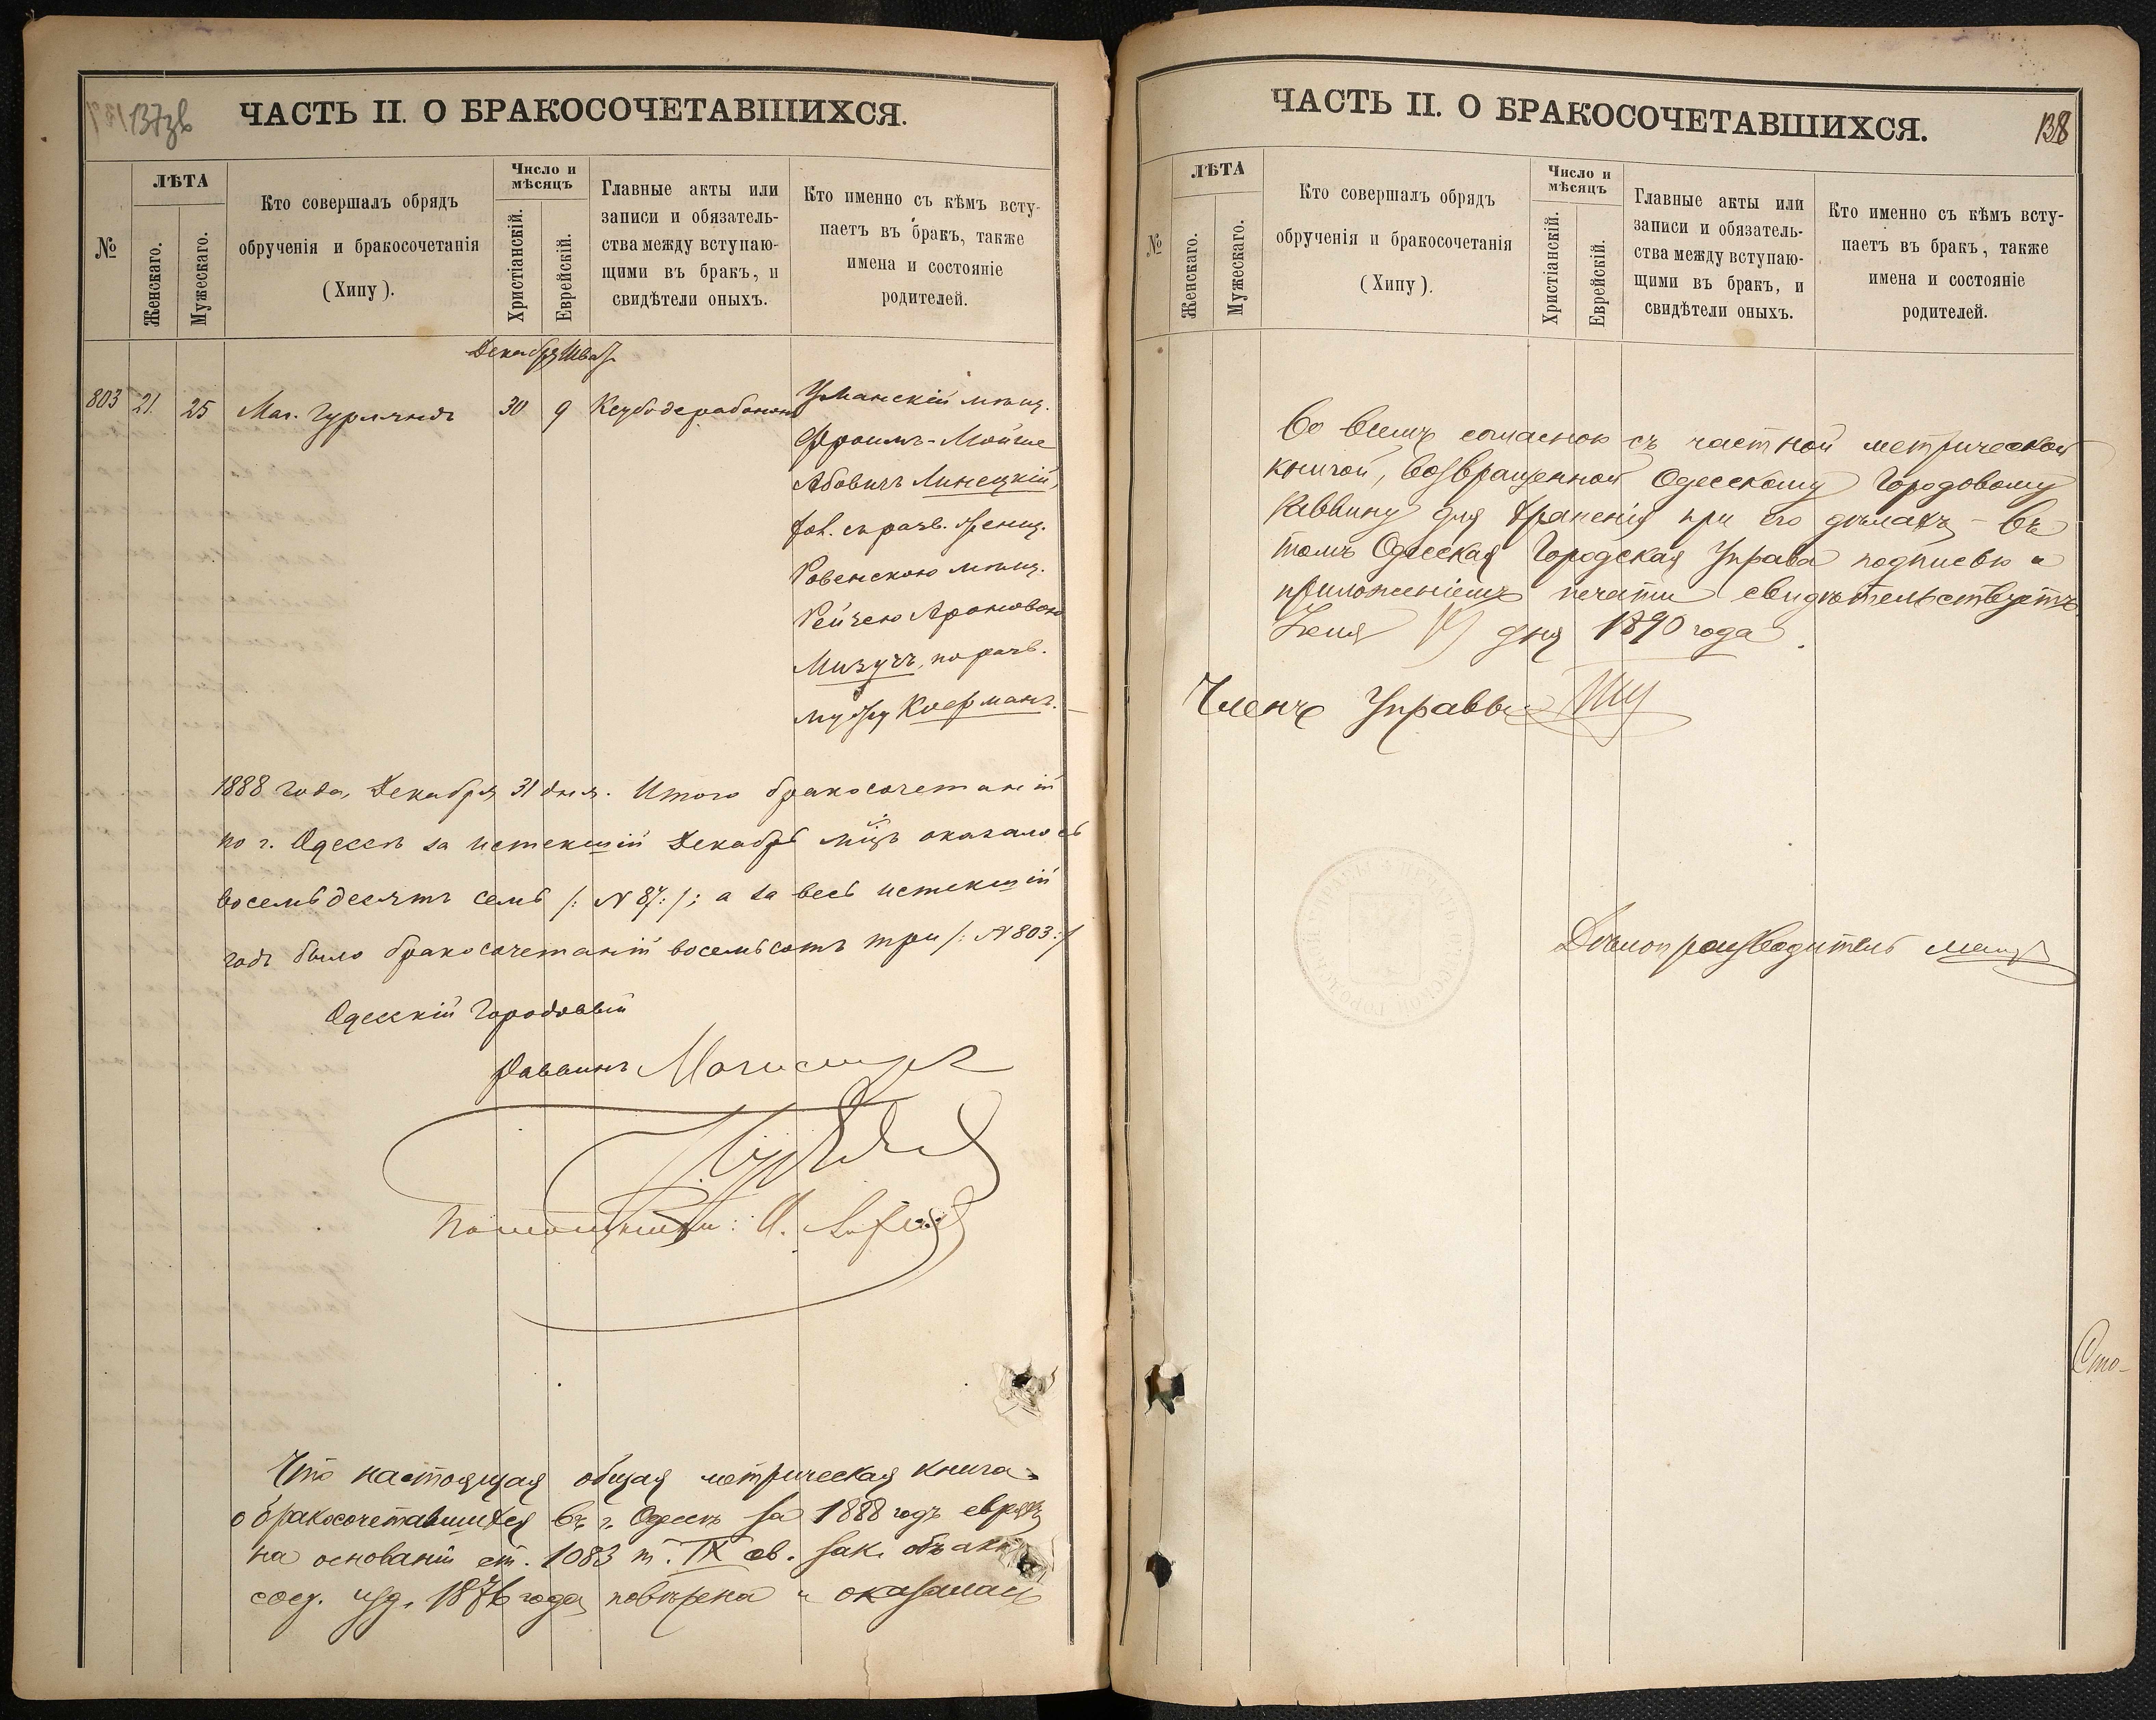 137зв
ЧАСТЬ II. О БРАКОСОЧЕТАВШИХСЯ.
№
ЛѢТА
Женскаго.
Мужескаго.
Кто совершалъ обрядъ
обрученія и бракосочетанія
(Хипу).
Число и
мѣсяцъ
Христіанскій.
Еврейскій.
Главные акты или
записи и обязатель-
ства между вступаю-
щими въ бракъ, и
свидѣтели оныхъ.
Кто именно съ кѣмъ всту-
паетъ въ бракъ, также
имена и состояніе
родителей.
Декабря Шватъ
803 21. 25 Маг. Гурляндъ 30 9 Кеубо дерабононъ Уманскій мѣщ.
Фроимъ-Мойше
Абовичъ Линецкій,
хол. съ разв. женщ.
Ровенскою мѣщ.
Рейзею Ароновою
Мизучъ, по разв.
мужу Коерманъ.
1888 года, Декабря 31 дня. Итого бракосочетаній
по г. Одессѣ за истекшій Декабрь мѣц оказалось
восемьдесятъ семь /: N 87: /; а за весь истекшій
годъ было бракосочетаній восемьсотъ три /: N 803: /
Одесскій Городовый
Раввинъ Магистръ
Помощникъ:
Что настоящая общая метрическая книга
о бракосочетавшихся въ г. Одессѣ за 1888 годъ евреяхъ
на основаніи ст. 1083 т. IX св. зак. объ акт
сост. изд. 1876 года повѣрена и оказалась
ЧАСТЬ II. О БРАКОСОЧЕТАВШИХСЯ.
138
№
ЛѢТА
Женскаго.
Мужескаго.
Кто совершалъ обрядъ
обрученія и бракосочетанія
(Хипу).
Число и
мѣсяцъ
Христіанскій.
Еврейскій.
Главные акты или
записи и обязатель-
ства между вступаю-
щими въ бракъ, и
свидѣтели оныхъ.
Кто именно съ кѣмъ всту-
паетъ въ бракъ, также
имена и состояніе
родителей.
во всемъ согласною съ частной метрической
книгой, возвращенной Одесскому Городовому
Раввину для храненія при его дѣлахъ – въ
томъ Одесская Городская Управа подписью и
приложеніемъ печати свидѣтельствуетъ
дня 1890 года.
Членъ Управы
Дѣлопроизводитель
Сто-